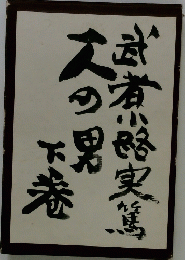 武者小路実篤
人の男
下巻